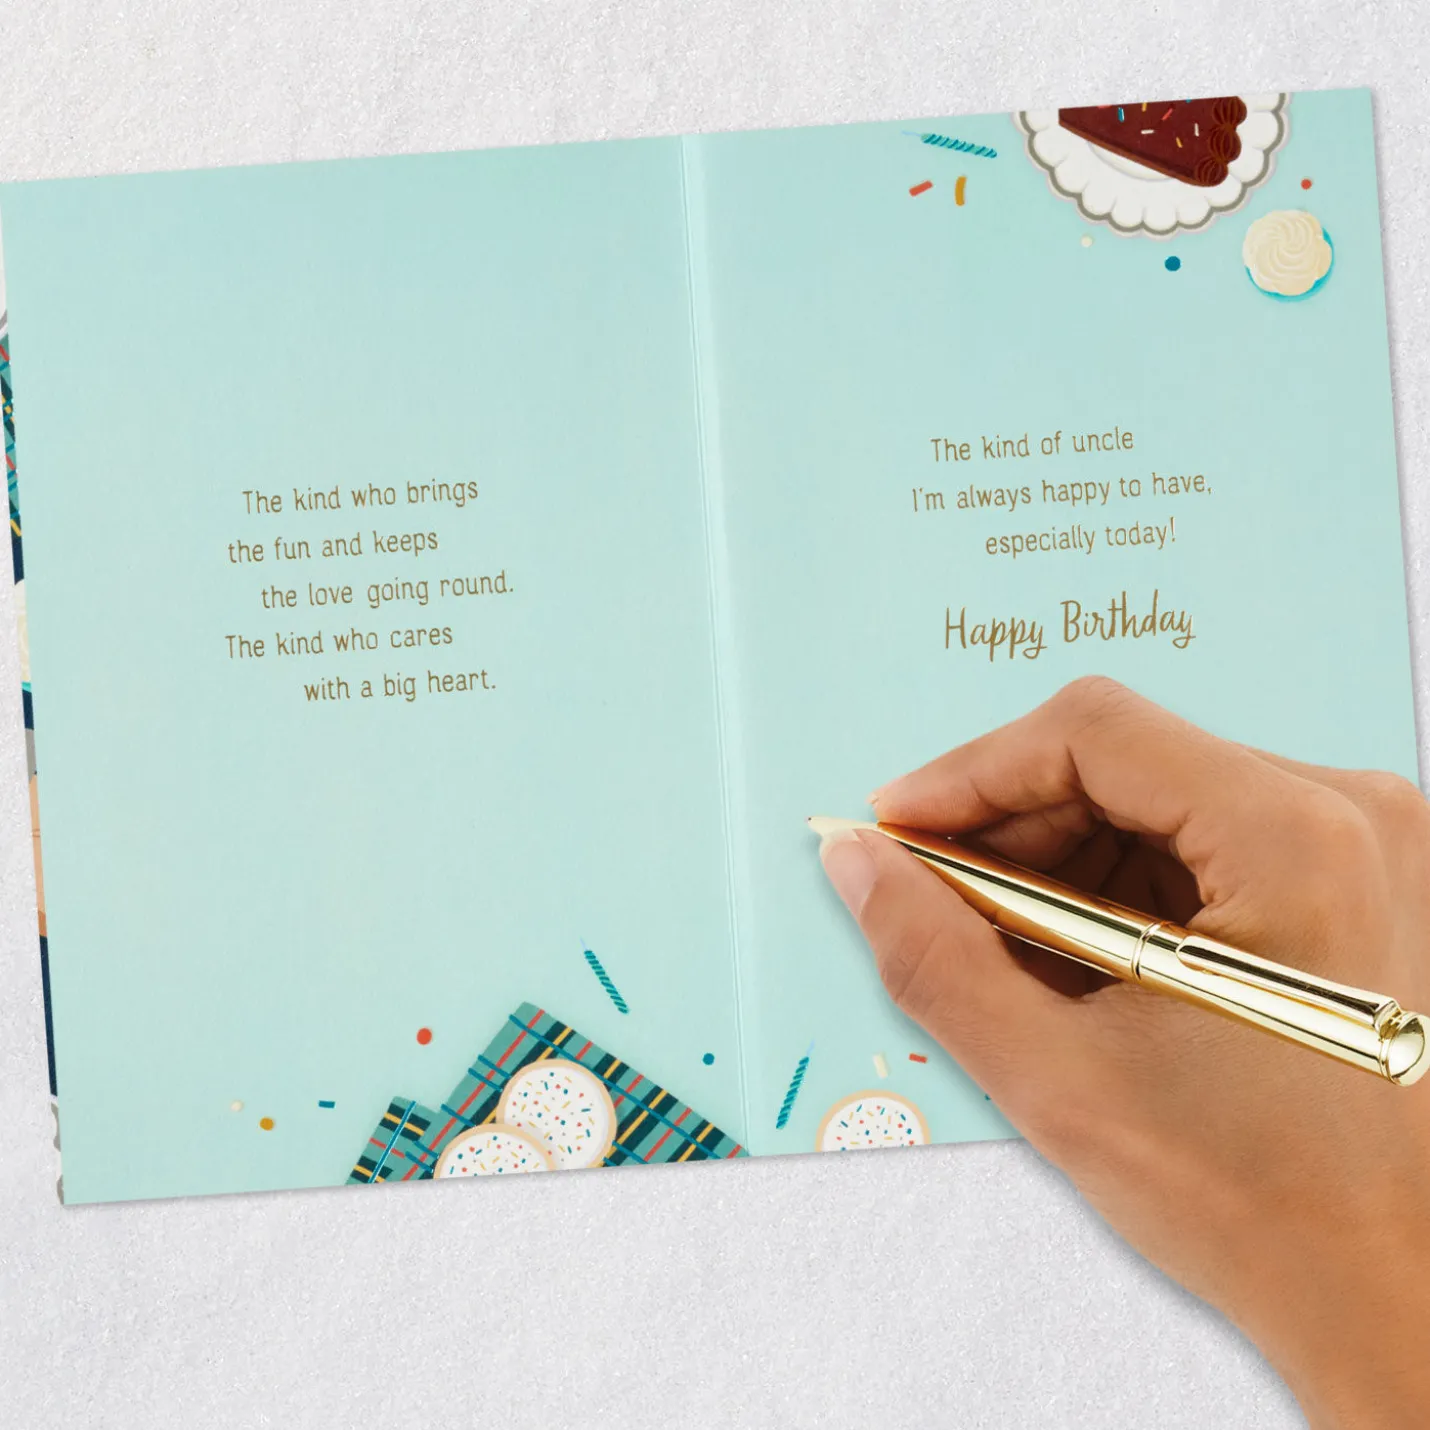 The kind who brings
the fun and keeps
the love going round.
The kind who cares
with a big heart.
The kind of uncle
I'm always happy to have,
especially today!
Happy Birthday